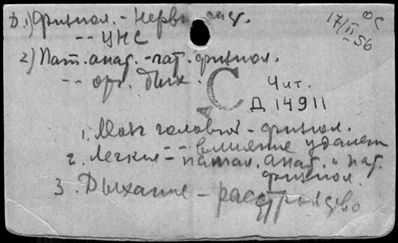 1) Физиол. - нервн. сист.
-- ЦНС
2) Пат. анат. - пат. физиол.
-- орг. дых.
17/II 56
С
Чит.
Д 14911
1. Мозг головной - физиол.
-- влияние удален
2. Легкие -- патол. анат. и пат.
физиол.
3. Дыхание - расстройство